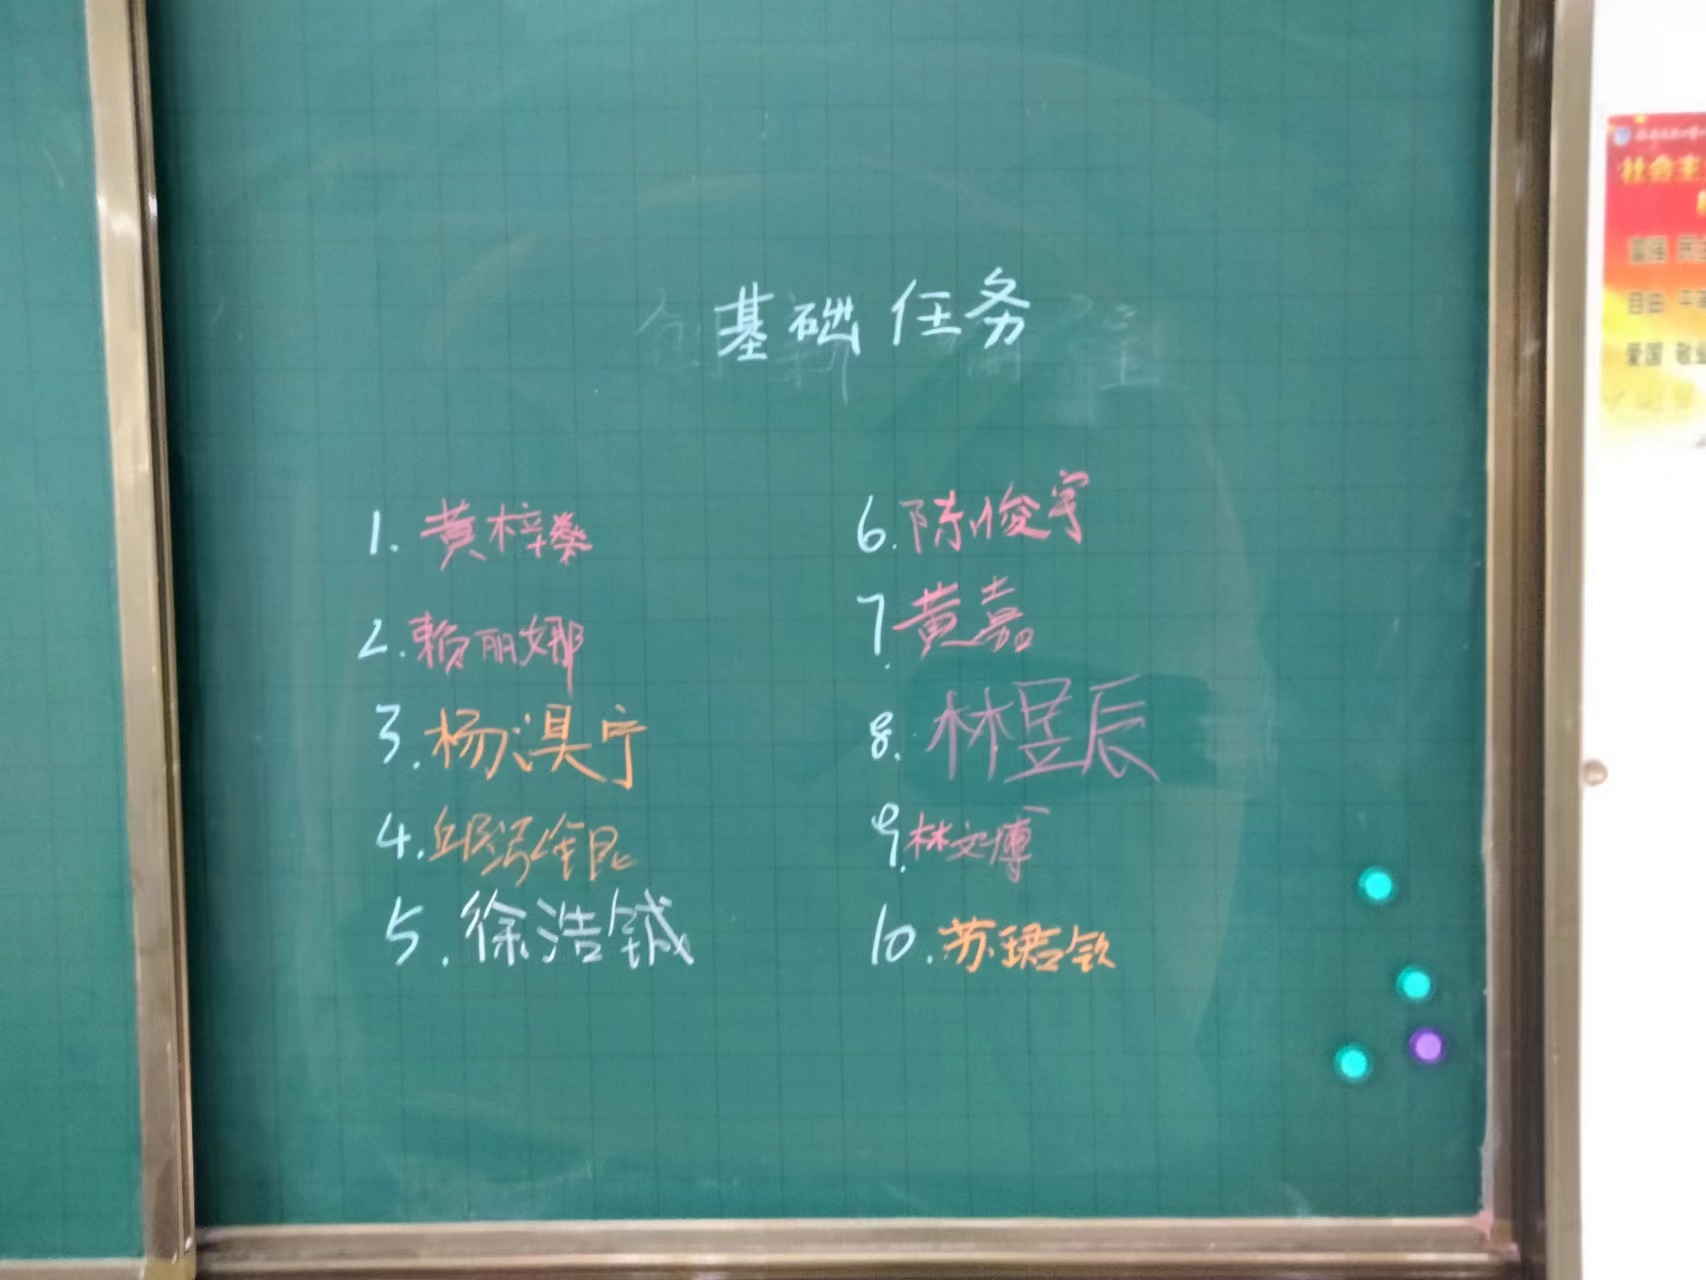 基础任务
1. 黄梓
2. 赖丽娜
3. 杨淏宁
4. 邱
5. 徐浩铖
6. 陈俊宇
7. 黄嘉
8. 林昱辰
9. 林文博
10. 苏珺钦
社会主
富强 民主
自由 平等
爱国 敬业